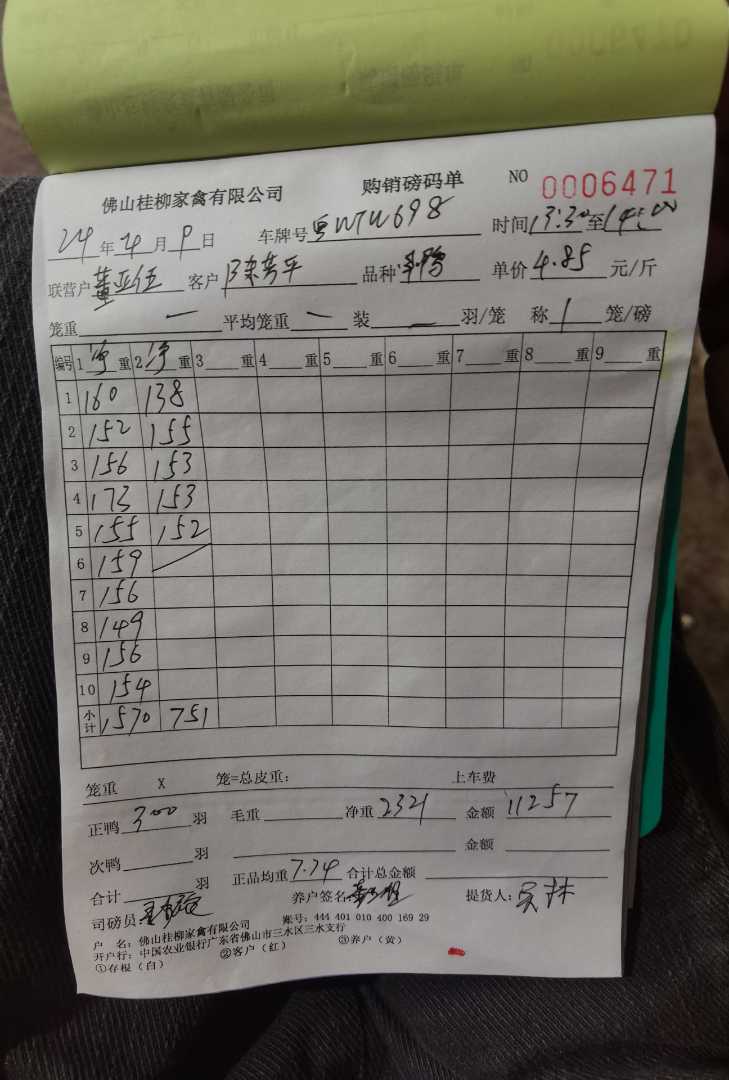 佛山桂柳家禽有限公司 购销磅码单 NO 0006471
24年4月9日 车牌号 粤WTW698 时间13:30至14:00
联营户董亚伍 客户 陈芳平 品种 单价4.85元/斤
笼重 — 平均笼重 — 装 — 羽/笼 称 1 笼/磅
编号 1净重 2净重 3重 4重 5重 6重 7重 8重 9重
1 160 138
2 152 155
3 156 153
4 173 153
5 155 152
6 159
7 156
8 149
9 156
10 154
小计 1570 751
笼重 X 笼=总皮重: 上车费
正鸭 300 羽 毛重 净重 2321 金额 11257
次鸭 羽 金额
合计 羽 正品均重 7.74 合计总金额
司磅员 养户签名 提货人:
户 名:佛山桂柳家禽有限公司 账号:444 401 010 400 169 29
开户行:中国农业银行广东省佛山市三水区三水支行
①存根(白) ②客户(红) ③养户(黄)